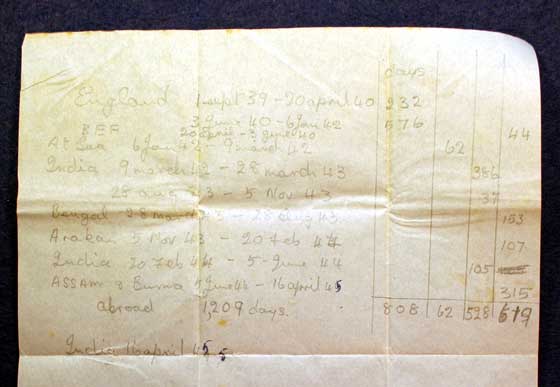 days
England 1 sept 39 - 20 april 40 232
3 June 40 - 6 Jan 42 576
B.E.F 20 april - 3 June 40 44
At Sea 6 Jan 42 - 9 march 42 62
India 9 march 42 - 28 march 43 386
28 aug 43 - 5 Nov 43 37
Bengal 28 march 43 - 28 Aug 43 153
Arakan 5 Nov 43 - 20 Feb 44 107
India 20 Feb 44 - 5 June 44 105
ASSAM & Burma 5 June 44 - 16 april 45 315
abroad 1,209 days. 808 62 528 619
India 16 april 45